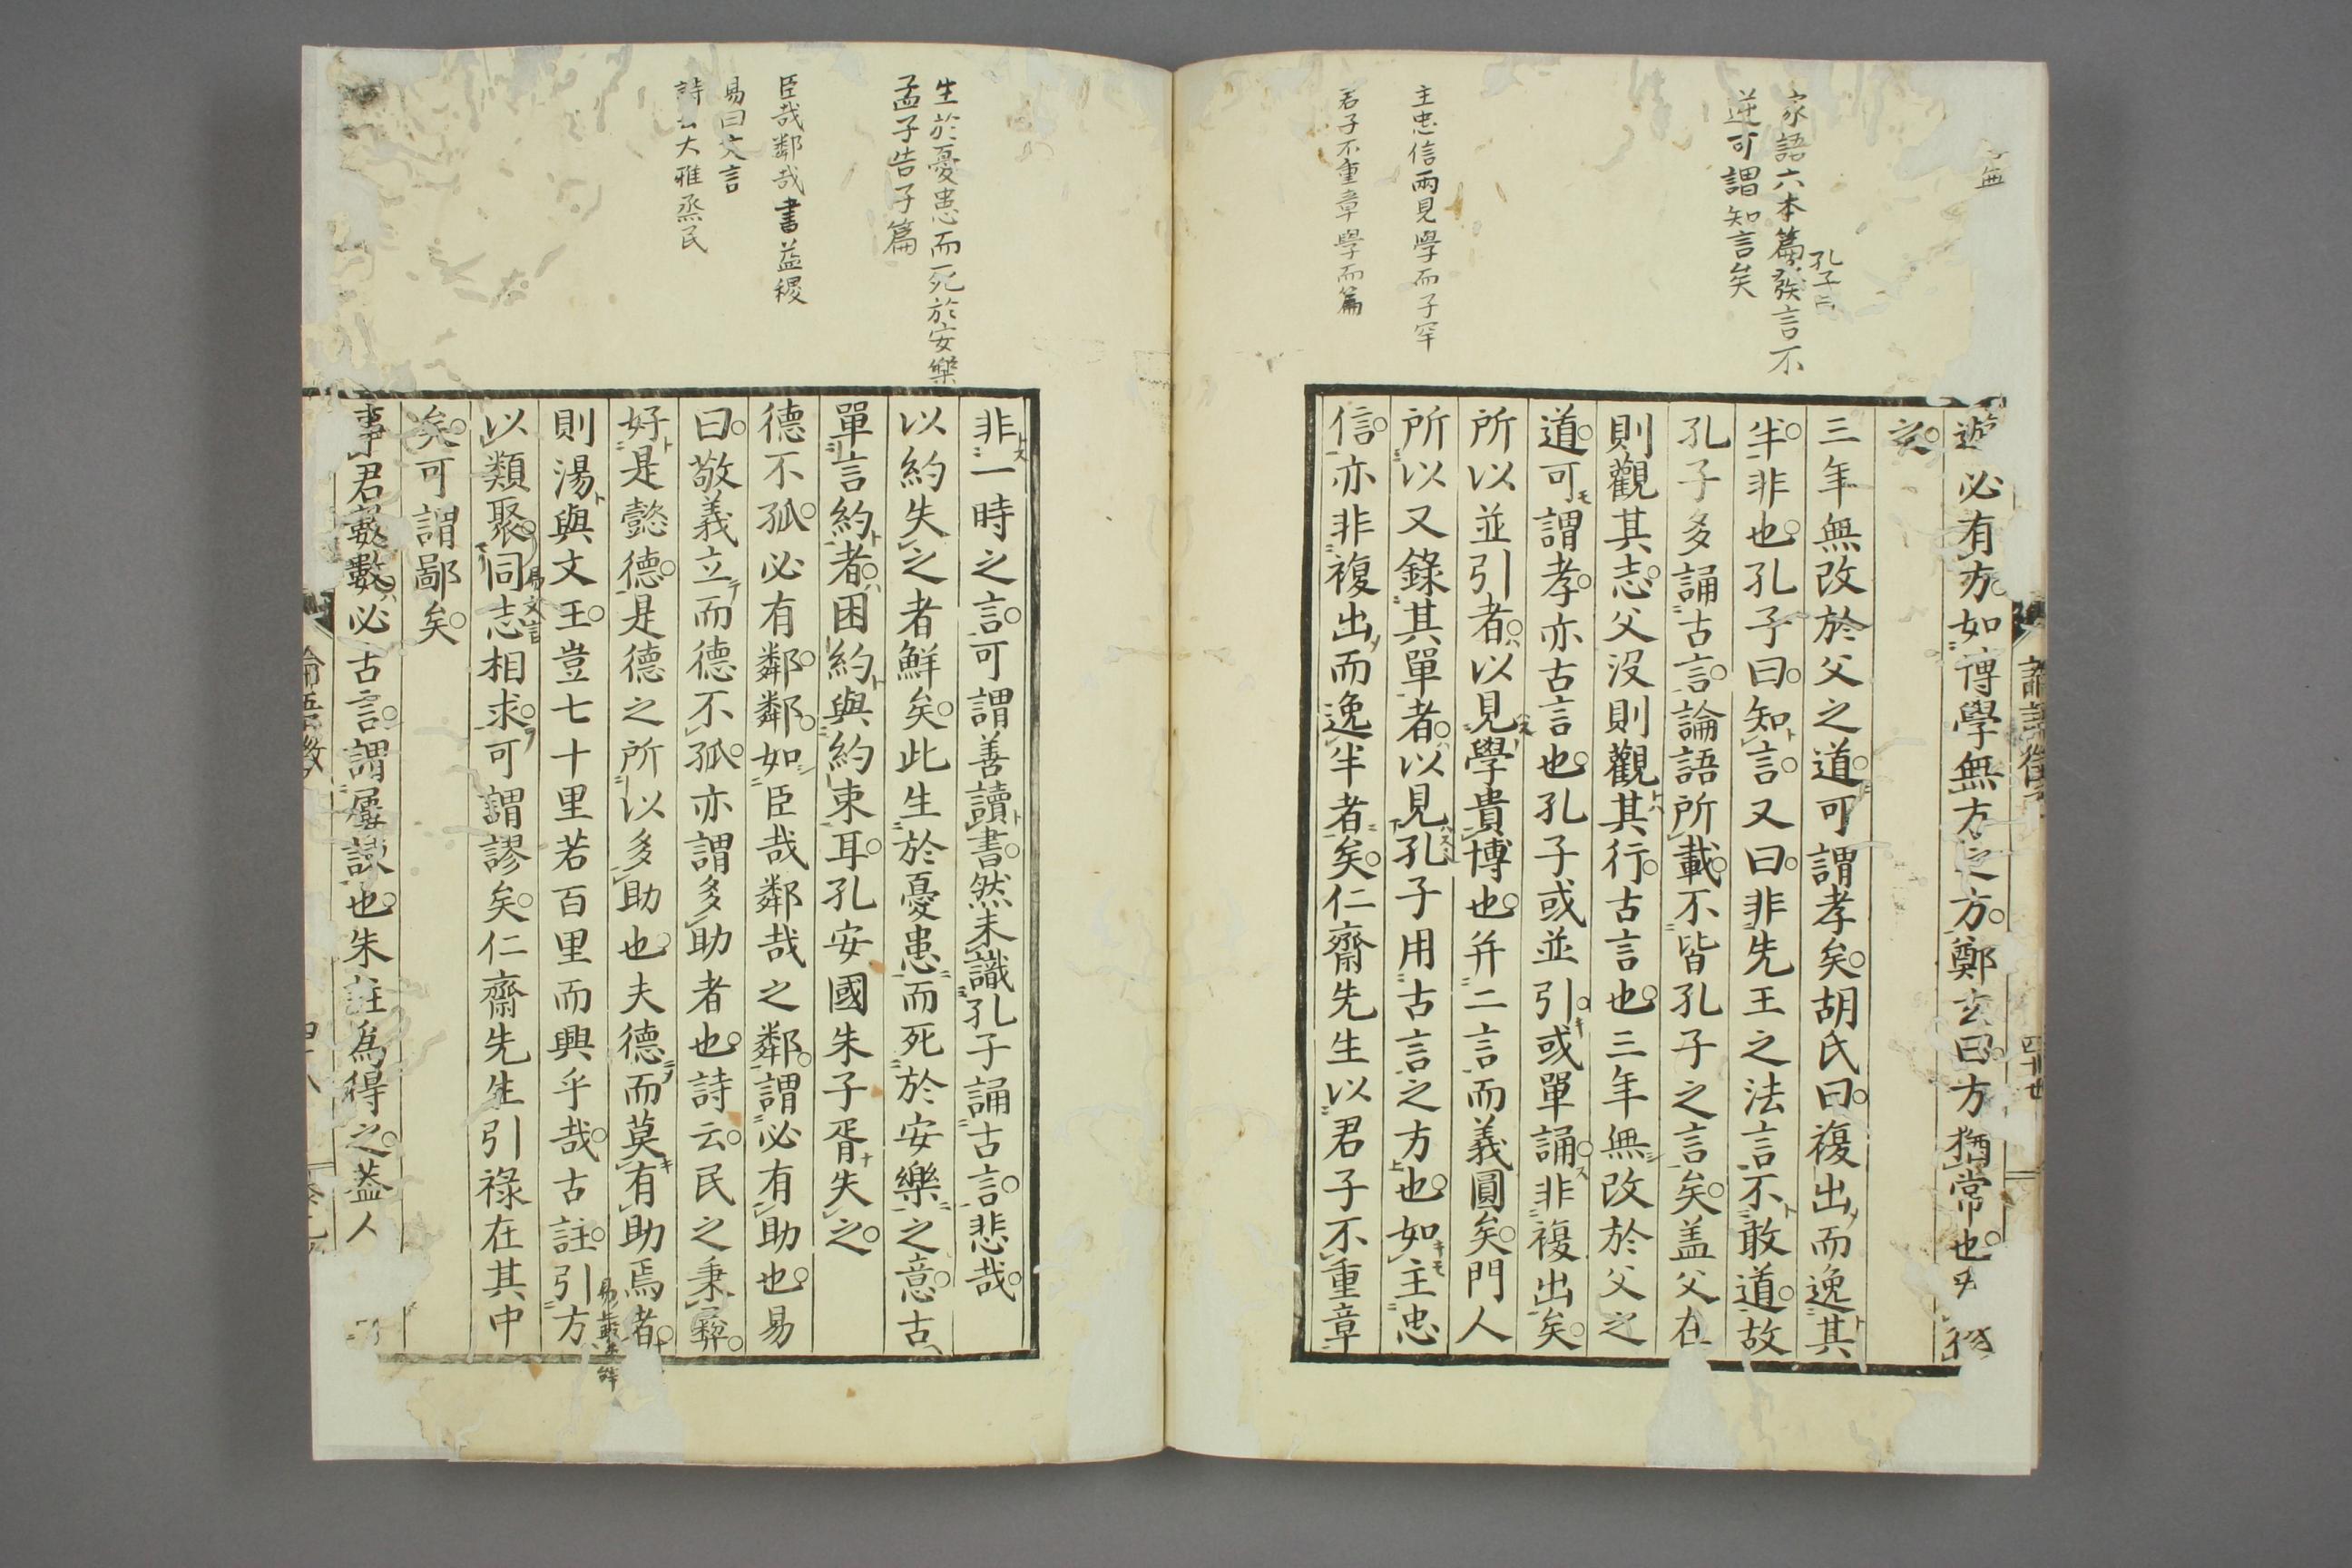 無
孔子曰
家語六本篇發言不
逆可謂知言矣
主忠信兩見學而子罕
君子不重章學而篇
遊必有方如博學無方之方鄭玄曰方猶常也
之
三年無改於父之道可謂孝矣胡氏曰複出而逸其
半非也孔子曰知言又曰非先王之法言不敢道故
孔子多誦古言論語所載不皆孔子之言矣盖父在
則觀其志父沒則觀其行古言也三年無改於父之
道可謂孝亦古言也孔子或並引或單誦非複出矣
所以並引者以見學貴博也并二言而義圓矣門人
所以又錄其單者以見孔子用古言之方也如主忠
信亦非複出而逸半者矣仁齋先生以君子不重章
生於憂患而死於安樂
孟子告子篇
臣哉鄰哉書益稷
易曰文言
詩云大雅烝民
非一時之言可謂善讀書然未識孔子誦古言悲哉
以約失之者鮮矣此生於憂患而死於安樂之意古
單言約者困約與約束耳孔安國朱子胥失之
德不孤必有鄰鄰如臣哉鄰哉之鄰謂必有助也易
曰敬義立而德不孤亦謂多助者也詩云民之秉彛
好是懿德是德之所以多助也夫德而莫有助焉者
則湯與文王豈七十里若百里而興乎哉古註引方
以類聚同志相求可謂謬矣仁齋先生引祿在其中
易文言
矣可謂鄙矣
事君數數必古言謂屢諫也朱註爲得之盖人
論語徵